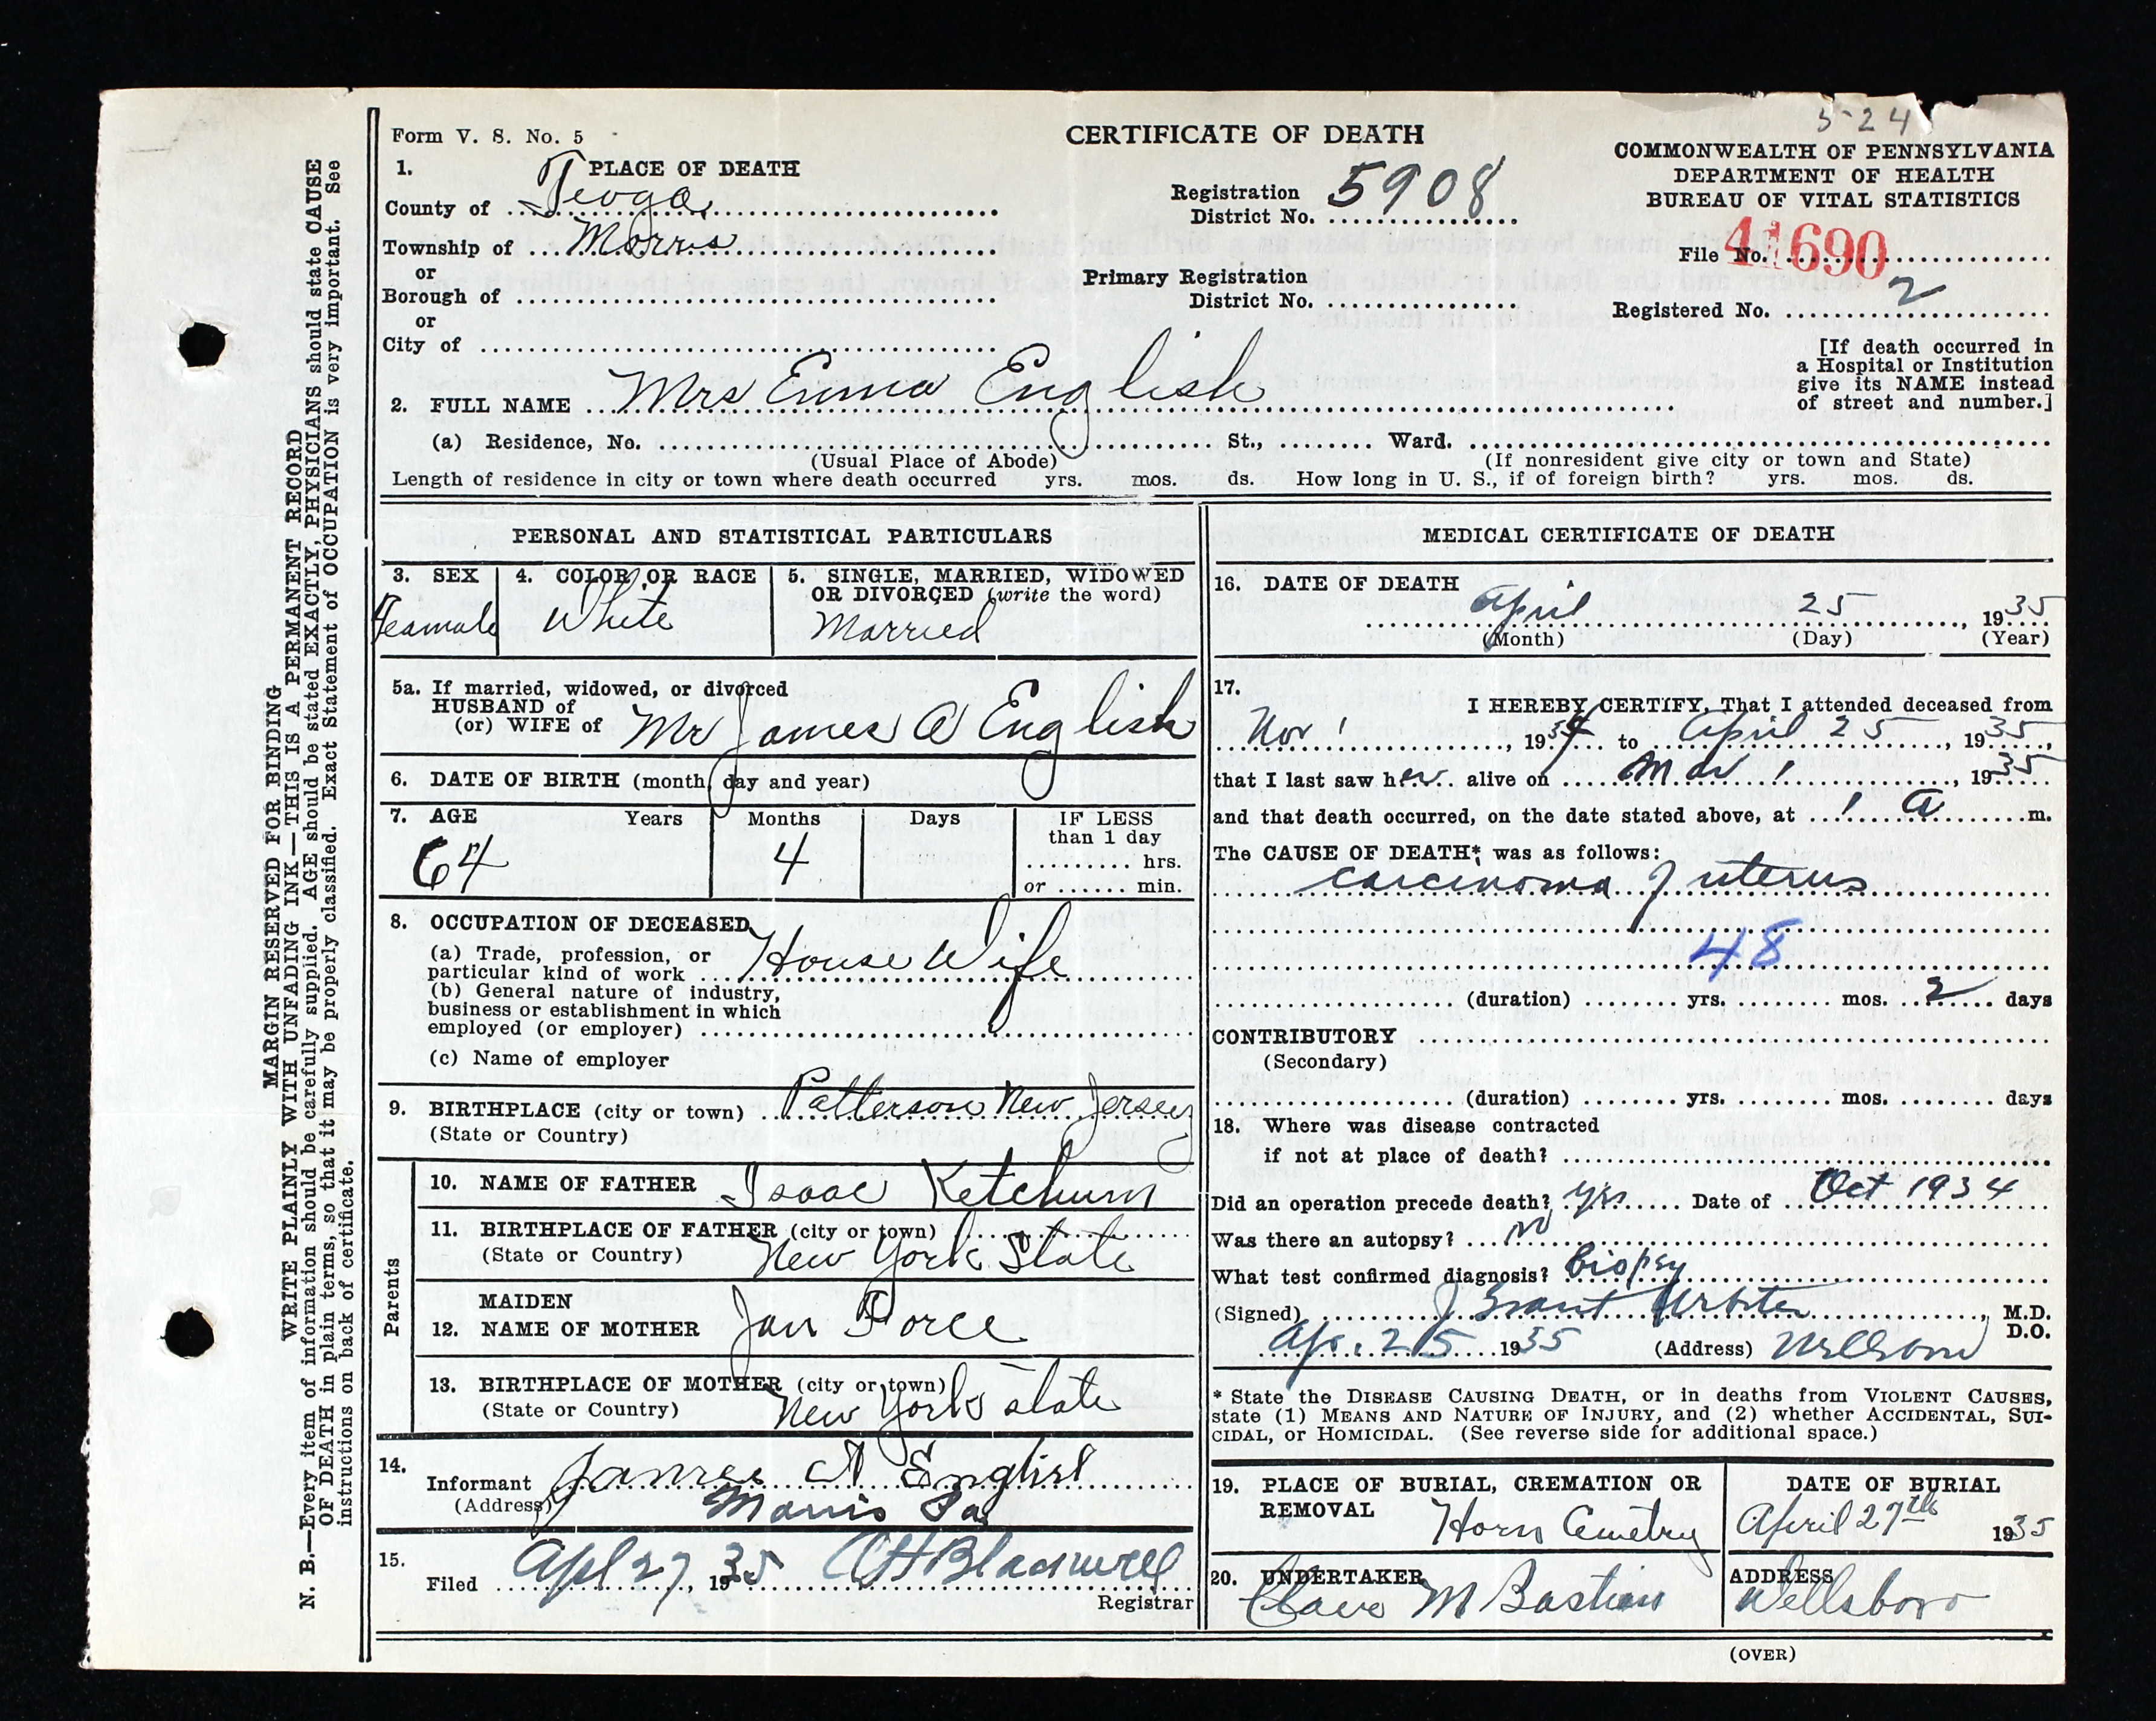 5-24
Form V. S. No. 5
CERTIFICATE OF DEATH
COMMONWEALTH OF PENNSYLVANIA
DEPARTMENT OF HEALTH
BUREAU OF VITAL STATISTICS
1. PLACE OF DEATH
County of Tioga
Township of Morris
or
Borough of
or
City of
Registration
District No. 5908
Primary Registration
District No.
File No. 41690
Registered No. 2
[If death occurred in
a Hospital or Institution
give its NAME instead
of street and number.]
2. FULL NAME Mrs Emma English
(a) Residence, No. St., Ward.
(Usual Place of Abode) (If nonresident give city or town and State)
Length of residence in city or town where death occurred yrs. mos. ds. How long in U. S., if of foreign birth? yrs. mos. ds.
PERSONAL AND STATISTICAL PARTICULARS
3. SEX
Feamale
4. COLOR OR RACE
White
5. SINGLE, MARRIED, WIDOWED
OR DIVORCED (write the word)
Married
5a. If married, widowed, or divorced
HUSBAND of
(or) WIFE of Mr James A English
6. DATE OF BIRTH (month, day and year)
7. AGE Years Months Days IF LESS
than 1 day
hrs.
or min.
64 4
8. OCCUPATION OF DECEASED
(a) Trade, profession, or
particular kind of work House Wife
(b) General nature of industry,
business or establishment in which
employed (or employer)
(c) Name of employer
9. BIRTHPLACE (city or town) Patterson New Jersey
(State or Country)
Parents
10. NAME OF FATHER Isaac Ketchum
11. BIRTHPLACE OF FATHER (city or town)
(State or Country) New York State
MAIDEN
12. NAME OF MOTHER Jan Force
13. BIRTHPLACE OF MOTHER (city or town)
(State or Country) New York state
14.
Informant James A English
(Address) Morris Pa
15.
Filed Apl 27, 1935 Blackwell
Registrar
MEDICAL CERTIFICATE OF DEATH
16. DATE OF DEATH
April 25, 1935
(Month) (Day) (Year)
17.
I HEREBY CERTIFY, That I attended deceased from
Nov 1, 1934 to April 25, 1935,
that I last saw her alive on Mar 1, 1935
and that death occurred, on the date stated above, at 1 a m.
The CAUSE OF DEATH* was as follows:
carcinoma of uterus
48
(duration) yrs. mos. 2 days
CONTRIBUTORY
(Secondary)
(duration) yrs. mos. days
18. Where was disease contracted
if not at place of death?
Did an operation precede death? yes Date of Oct 1934
Was there an autopsy? no
What test confirmed diagnosis? biopsy
(Signed) J Grant, M.D.
D.O.
Apr. 25 1935 (Address)
* State the DISEASE CAUSING DEATH, or in deaths from VIOLENT CAUSES,
state (1) MEANS AND NATURE OF INJURY, and (2) whether ACCIDENTAL, SUI-
CIDAL, or HOMICIDAL. (See reverse side for additional space.)
19. PLACE OF BURIAL, CREMATION OR
REMOVAL Horn Cemetry
DATE OF BURIAL
April 27th 1935
20. UNDERTAKER
M Bastian
ADDRESS
Wellsboro
(OVER)
MARGIN RESERVED FOR BINDING
WRITE PLAINLY WITH UNFADING INK—THIS IS A PERMANENT RECORD
N. B.—Every item of information should be carefully supplied. AGE should be stated EXACTLY, PHYSICIANS should state CAUSE
OF DEATH in plain terms, so that it may be properly classified. Exact Statement of OCCUPATION is very important. See
instructions on back of certificate.